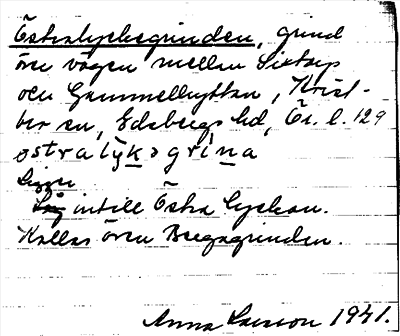 Östralyckegrinden, grind
över vägen mellan Sixtorp
och Gammelhyttan, Krist-
ber en, Edsbergs hd, Ör. l. 129
östralykogrina
Ligger
intill Östra lyckan.
Kallas även Bergagrinden.
Anna Larsson 1941.